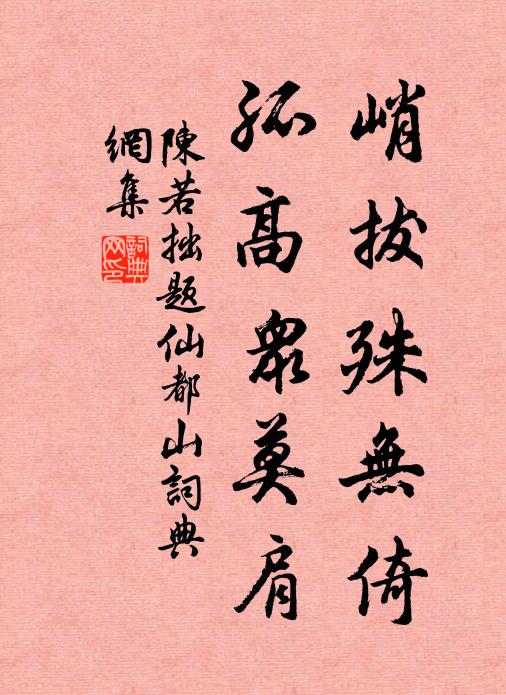 峭拔殊無倚
孤高眾莫肩
陳若拙題仙都山詞典
網集
詞典
网印